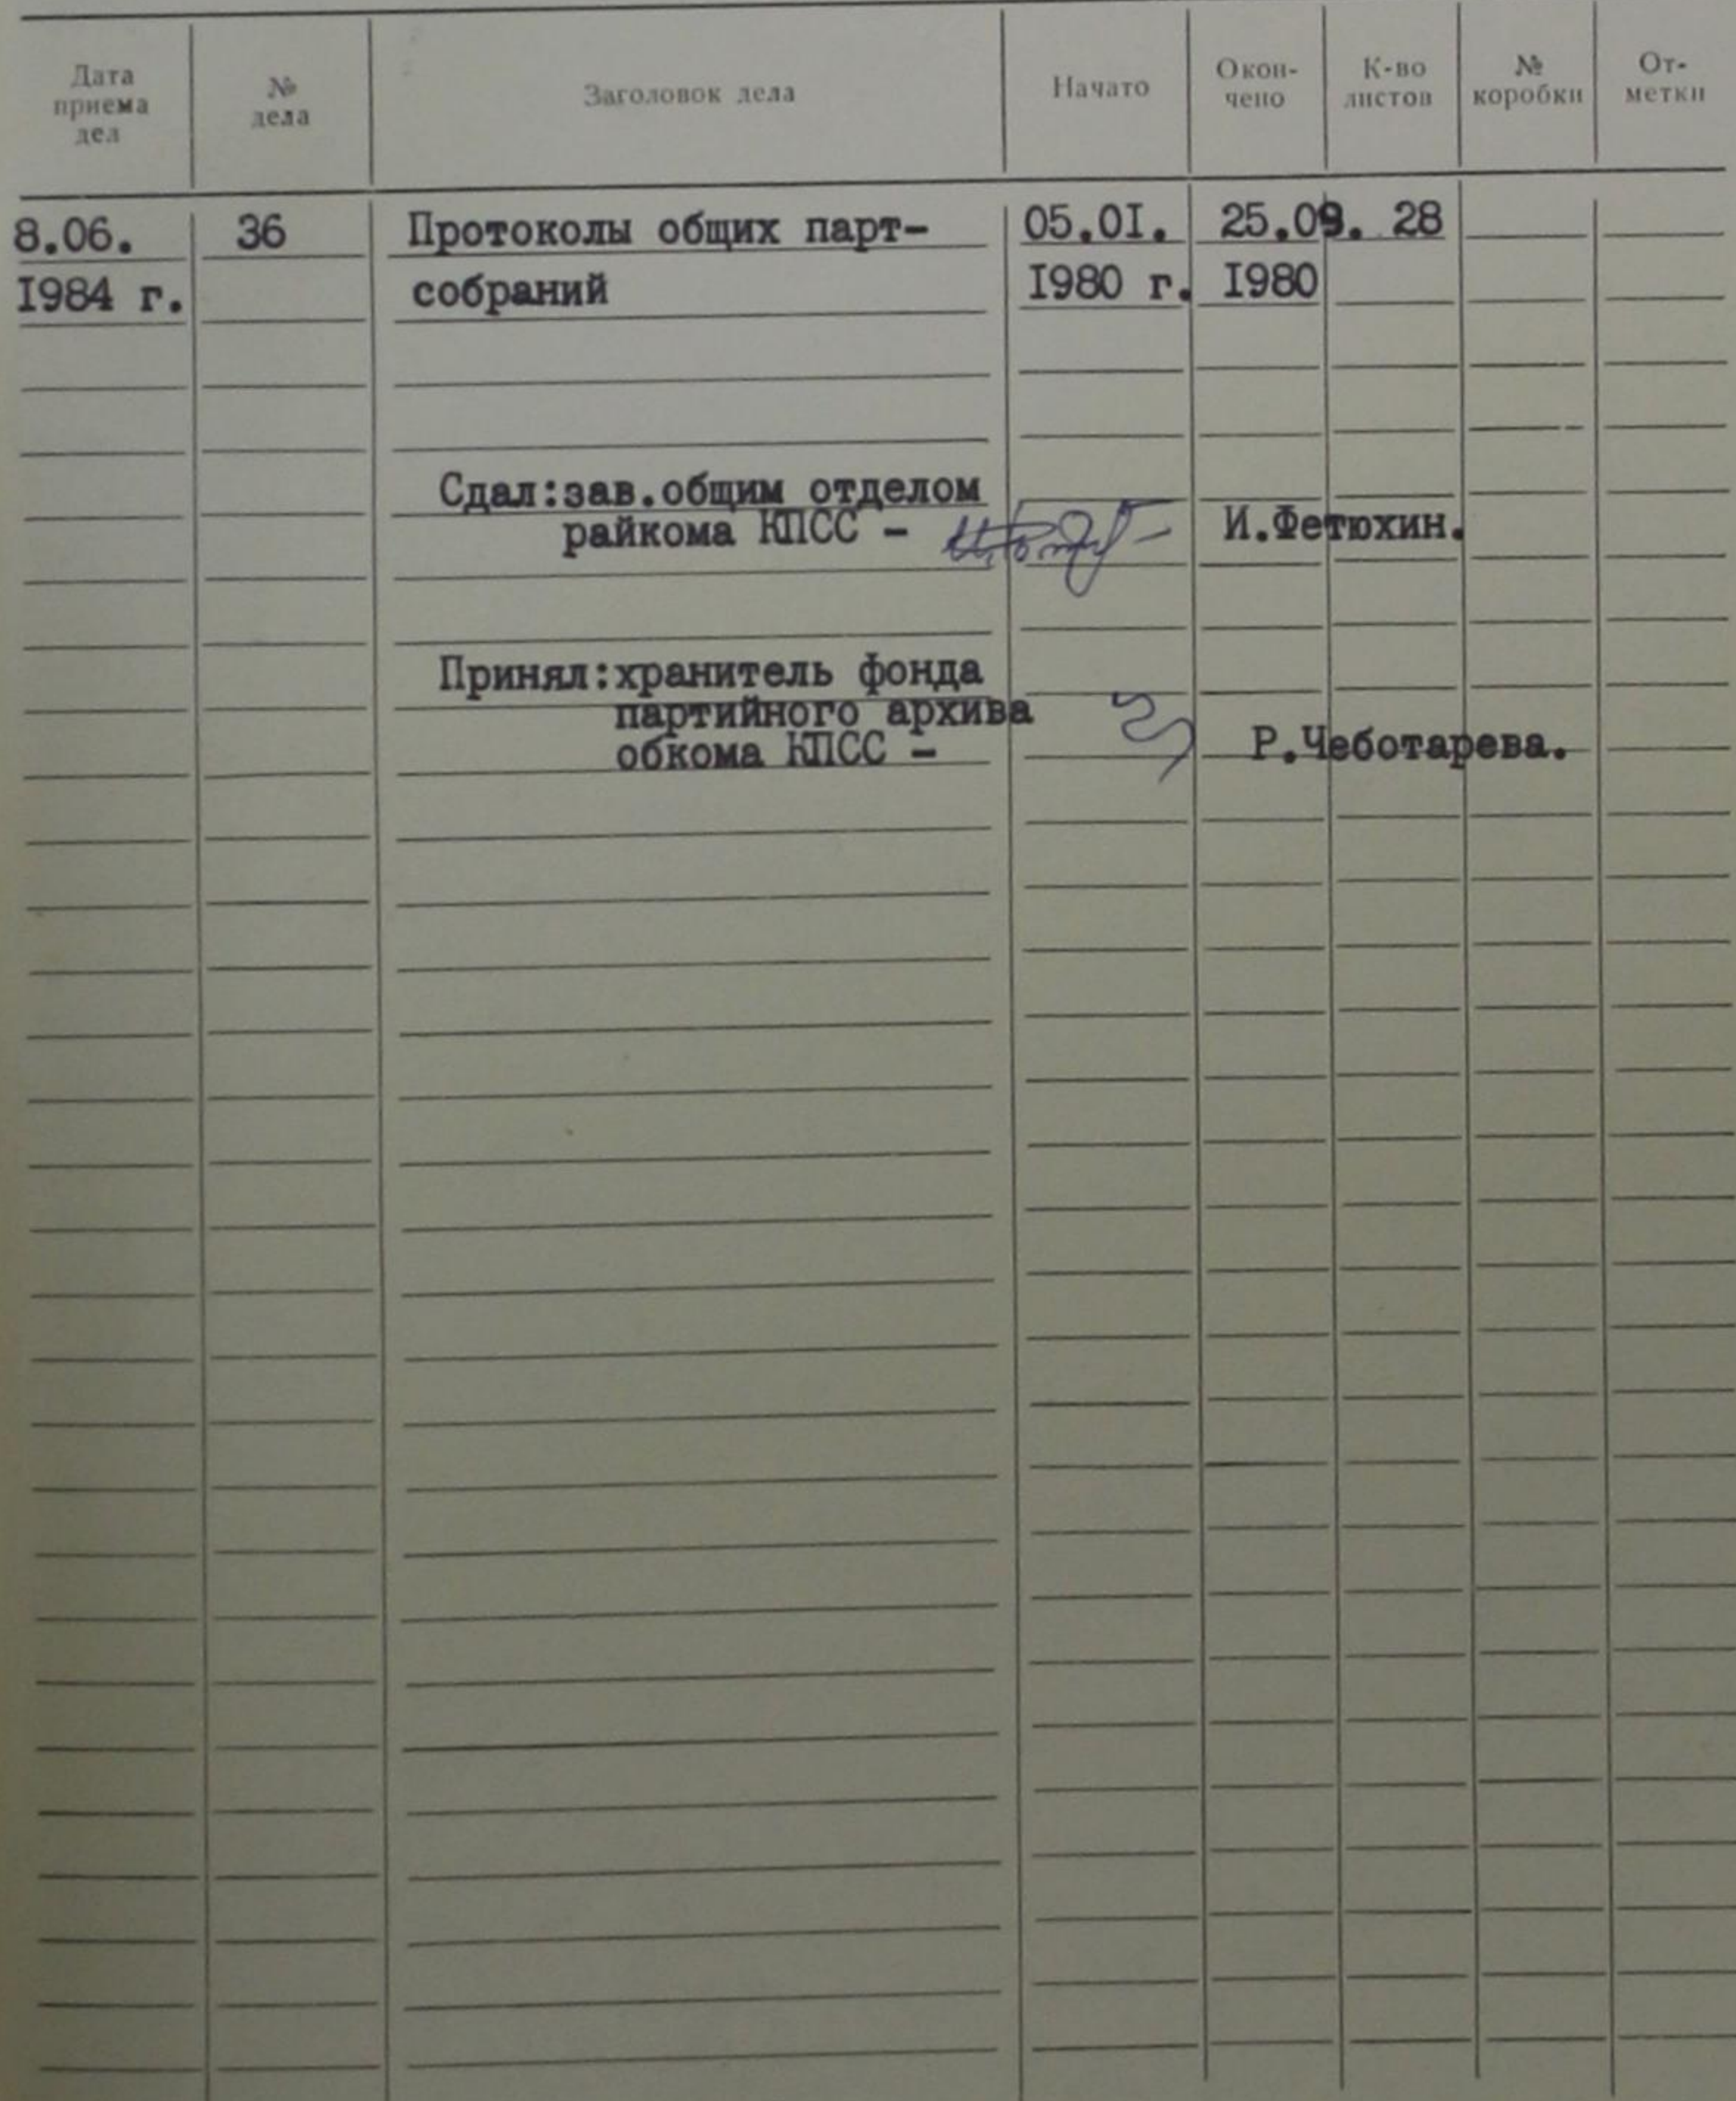 Дата приема дел № дела Заголовок дела Начато Окон- чено К-во листов № коробки От- метки
8.06. 36 Протоколы общих парт- 05.0I. 25.09. 28
I984 г. собраний I980 г. I980
Сдал:зав.общим отделом
райкома КПСС - И.Фетюхин.
Принял:хранитель фонда
партийного архива
обкома КПСС - Р.Чеботарева.